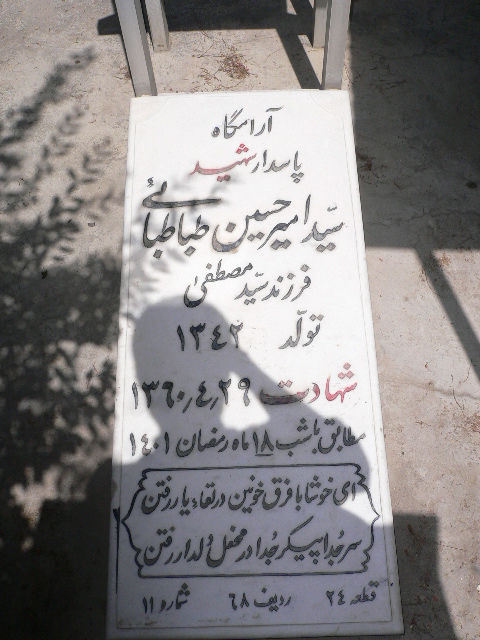 آرامگاه
پاسدار شهید
سیّد امیرحسین طباطبائی
فرزند سیّد مصطفی
تولّد ۱۳۴۲
شهادت ۱۳۶۰/۴/۲۹
مطابق باشب ۱۸ ماه رمضان ۱۴۰۱
ای خوشا با فرق خونین در لقاء یار رفتن
سر جُدا پیکر جُدا در محفل دلدار رفتن
قطعه ۲۴ ردیف ۶۸ شماره ۱۱